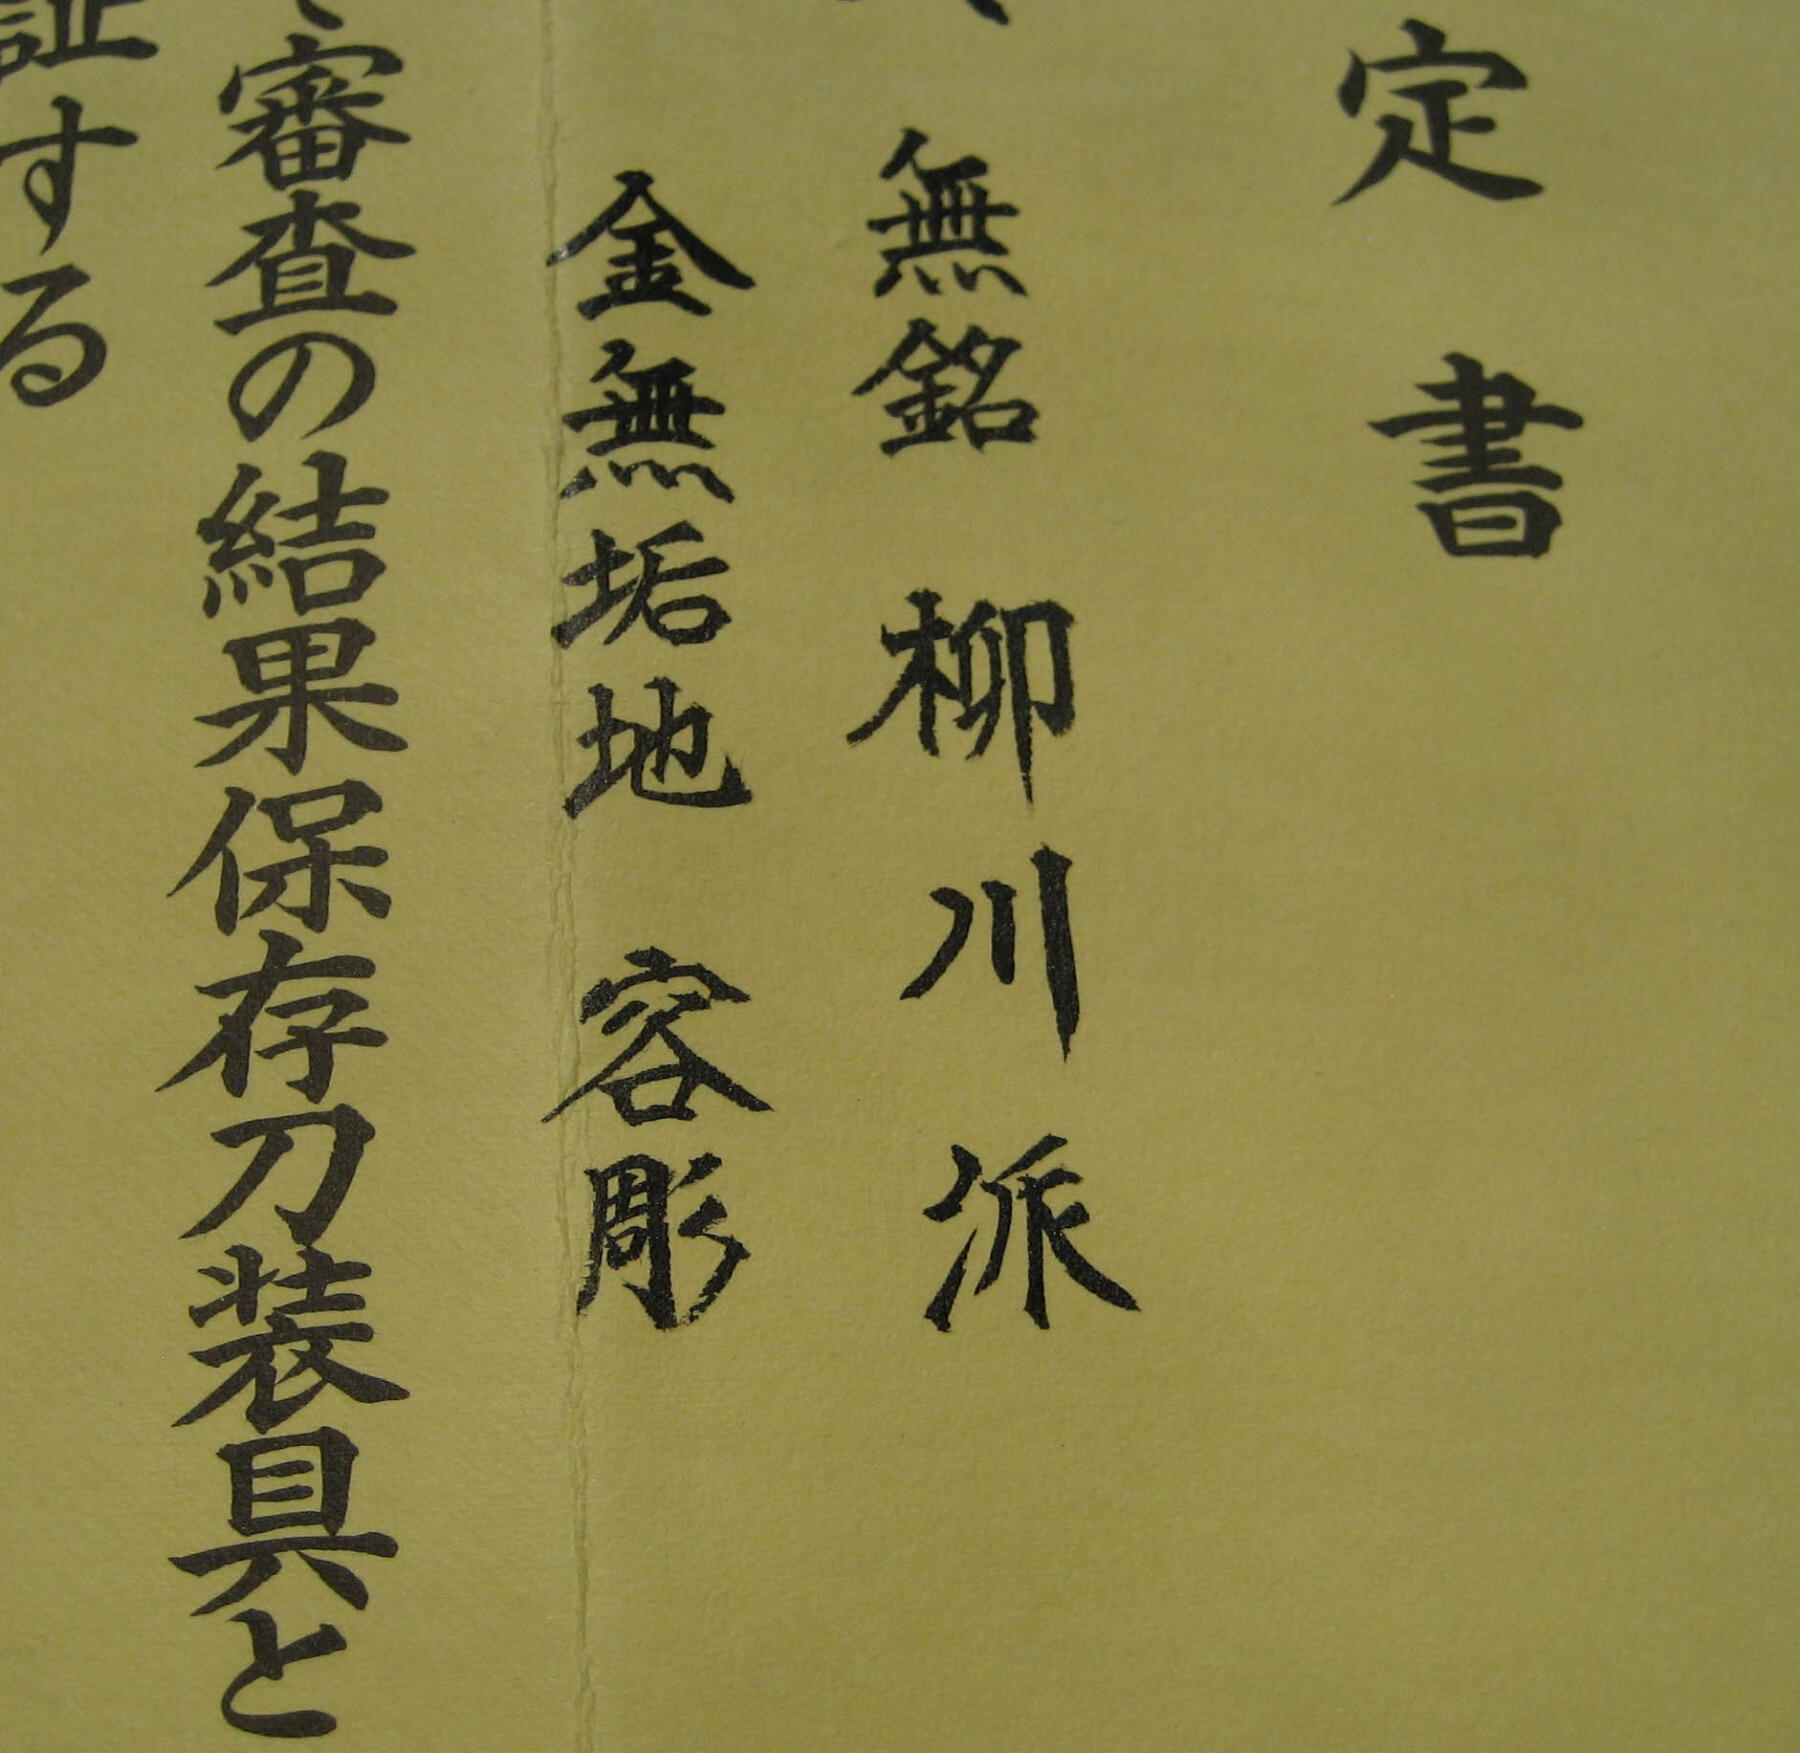 定書
無銘 柳川派
金無垢地 容彫
審査の結果保存刀装具と
証する